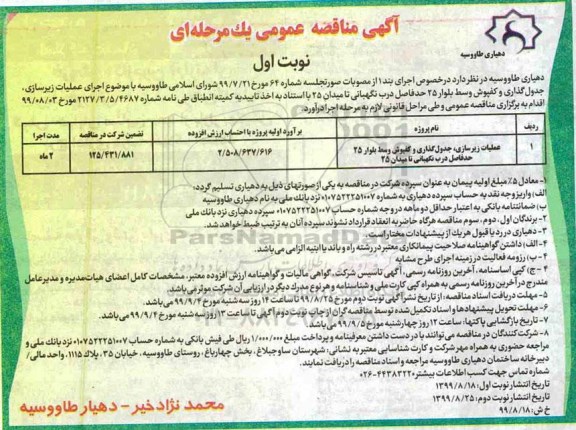 آگهی مناقصه عمومی یک‌مرحله‌ای
نوبت اول
دهیاری طاووسیه
دهیاری طاووسیه در نظر دارد درخصوص اجرای بند ۱ از مصوبات صورتجلسه شماره ۶۴ مورخ ۹۹/۷/۲۱ شورای اسلامی طاووسیه با موضوع اجرای عملیات زیرسازی،
جدول‌گذاری و کفپوش وسط بلوار ۲۵ حدفاصل درب نگهبانی تا میدان ۲۵ با استناد به اخذ تاییدیه کمیته انطباق طی نامه شماره ۲۱۲۷/۳/۵/۴۶۸۷ مورخ ۹۹/۰۸/۰۳
اقدام به برگزاری مناقصه عمومی و طی مراحل قانونی لازم به مرحله اجرا درآورد.
ردیف نام پروژه برآورد اولیه پروژه با احتساب ارزش افزوده تضمین شرکت در مناقصه مدت اجرا
۱ عملیات زیرسازی، جدول‌گذاری و کفپوش وسط بلوار ۲۵ حدفاصل درب نگهبانی تا میدان ۲۵ ۲/۵۰۸/۶۳۷/۶۱۶ ۱۲۵/۴۳۱/۸۸۱ ۲ ماه
۱- معادل ۵٪ مبلغ اولیه پیمان به عنوان سپرده شرکت در مناقصه به یکی از صورتهای ذیل به دهیاری تسلیم گردد:
الف) واریز وجه نقد به حساب سپرده دهیاری به شماره ۰۱۰۷۵۲۲۲۵۱۰۰۷ نزد بانک ملی به نام دهیاری طاووسیه
ب) ضمانتنامه بانکی به اعتبار حداقل دو ماهه در وجه شماره حساب ۰۱۰۷۵۲۲۲۵۱۰۰۷ سپرده دهیاری نزد بانک ملی
۲- برندگان اول، دوم، سوم مناقصه هرگاه حاضر به انعقاد قرارداد نشوند سپرده آنان به ترتیب ضبط خواهد شد.
۳- دهیاری در رد یا قبول هر یک از پیشنهادات مختار است.
۴- الف: داشتن گواهینامه صلاحیت پیمانکاری معتبر در رشته راه و باند یا ابنیه الزامی می‌باشد.
۴- ب) رزومه فعالیت در زمینه اجرای طرح مشابه
۴- ج) کپی اساسنامه، آخرین روزنامه رسمی، آگهی تاسیس شرکت، گواهی مالیات و گواهینامه ارزش افزوده معتبر، مشخصات کامل اعضای هیات‌مدیره و مدیرعامل
مندرج در آخرین روزنامه رسمی به همراه کپی کارت ملی و شناسنامه و هر نوع مدرک دیگر در ارزیابی آن شرکت موثر می‌باشد.
۵- مهلت دریافت اسناد مناقصه: از تاریخ نشر آگهی نوبت دوم مورخ ۹۹/۸/۲۵ تا ساعت ۱۴ روز سه‌شنبه مورخ ۹۹/۹/۴ می‌باشد.
۶- مهلت تحویل پیشنهادها و اسناد تکمیل شده توسط مناقصه گران از چاپ نوبت دوم آگهی تا ساعت ۱۳ روز سه‌شنبه مورخ ۹۹/۹/۴ می‌باشد.
۷- تاریخ بازگشایی پاکتها: ساعت ۱۲ روز چهارشنبه مورخ ۹۹/۹/۵ می‌باشد.
۸- شرکت کنندگان در مناقصه می‌توانند با در دست داشتن معرفینامه و پرداخت مبلغ ۱/۰۰۰/۰۰۰ ریال طی فیش بانکی به شماره حساب ۰۱۰۷۵۲۲۲۵۱۰۰۷ نزد بانک ملی و
مراجعه حضوری به همراه مهر شرکت و کارت شناسایی معتبر به نشانی: شهرستان ساوجبلاغ، بخش چهارباغ، روستای طاووسیه، خیابان ۳۵، پلاک ۱۱۱۵، واحد مالی/
دبیرخانه ساختمان دهیاری طاووسیه مراجعه و اسناد مناقصه را دریافت نمایند.
شماره تماس جهت کسب اطلاعات بیشتر: ۴۴۴۳۸۳۲۲-۰۲۶
تاریخ انتشار نوبت اول: ۱۳۹۹/۸/۱۸
تاریخ انتشار نوبت دوم: ۱۳۹۹/۸/۲۵
خ ش: ۹۹/۸/۱۸
محمد نژادخیر - دهیار طاووسیه